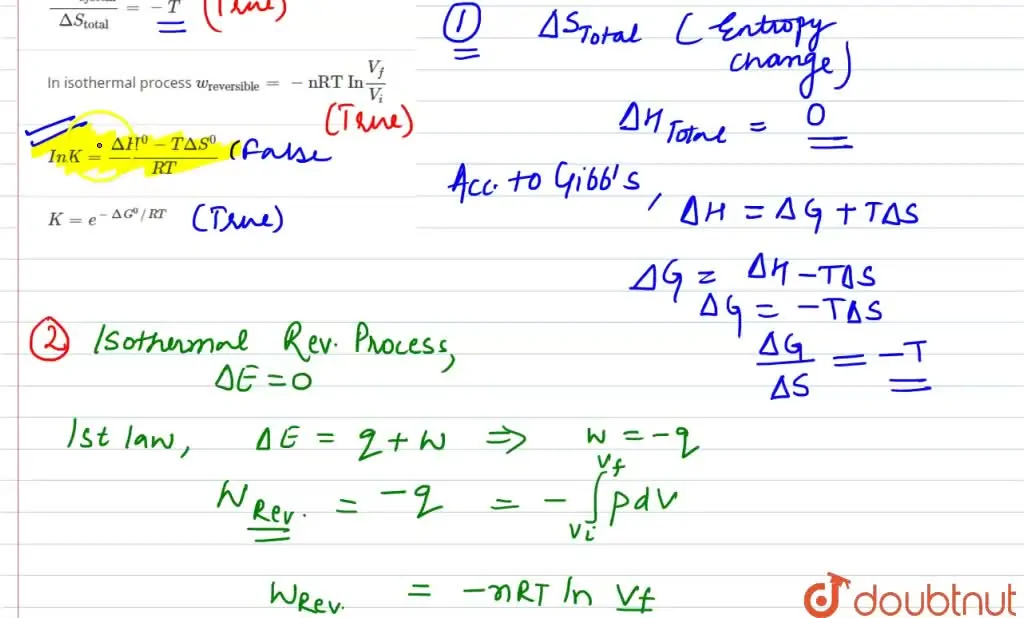 ΔS_total = −T (True)
In isothermal process w_reversible = − nRT In V_f/V_i
(True)
InK = ΔH⁰ − TΔS⁰/RT (False
K = e^−ΔG⁰/RT (True)
① ΔS_Total (Entropy
change)
ΔH_Total = 0
Acc. to Gibb's, ΔH = ΔG + TΔS
ΔG = ΔH − TΔS
ΔG = −TΔS
ΔG/ΔS = −T
② Isothermal Rev. Process,
ΔE = 0
Ist law, ΔE = q + w ⇒ w = −q
W_Rev. = −q = −∫_Vi^Vf PdV
W_Rev. = −nRT ln Vf
doubtnut